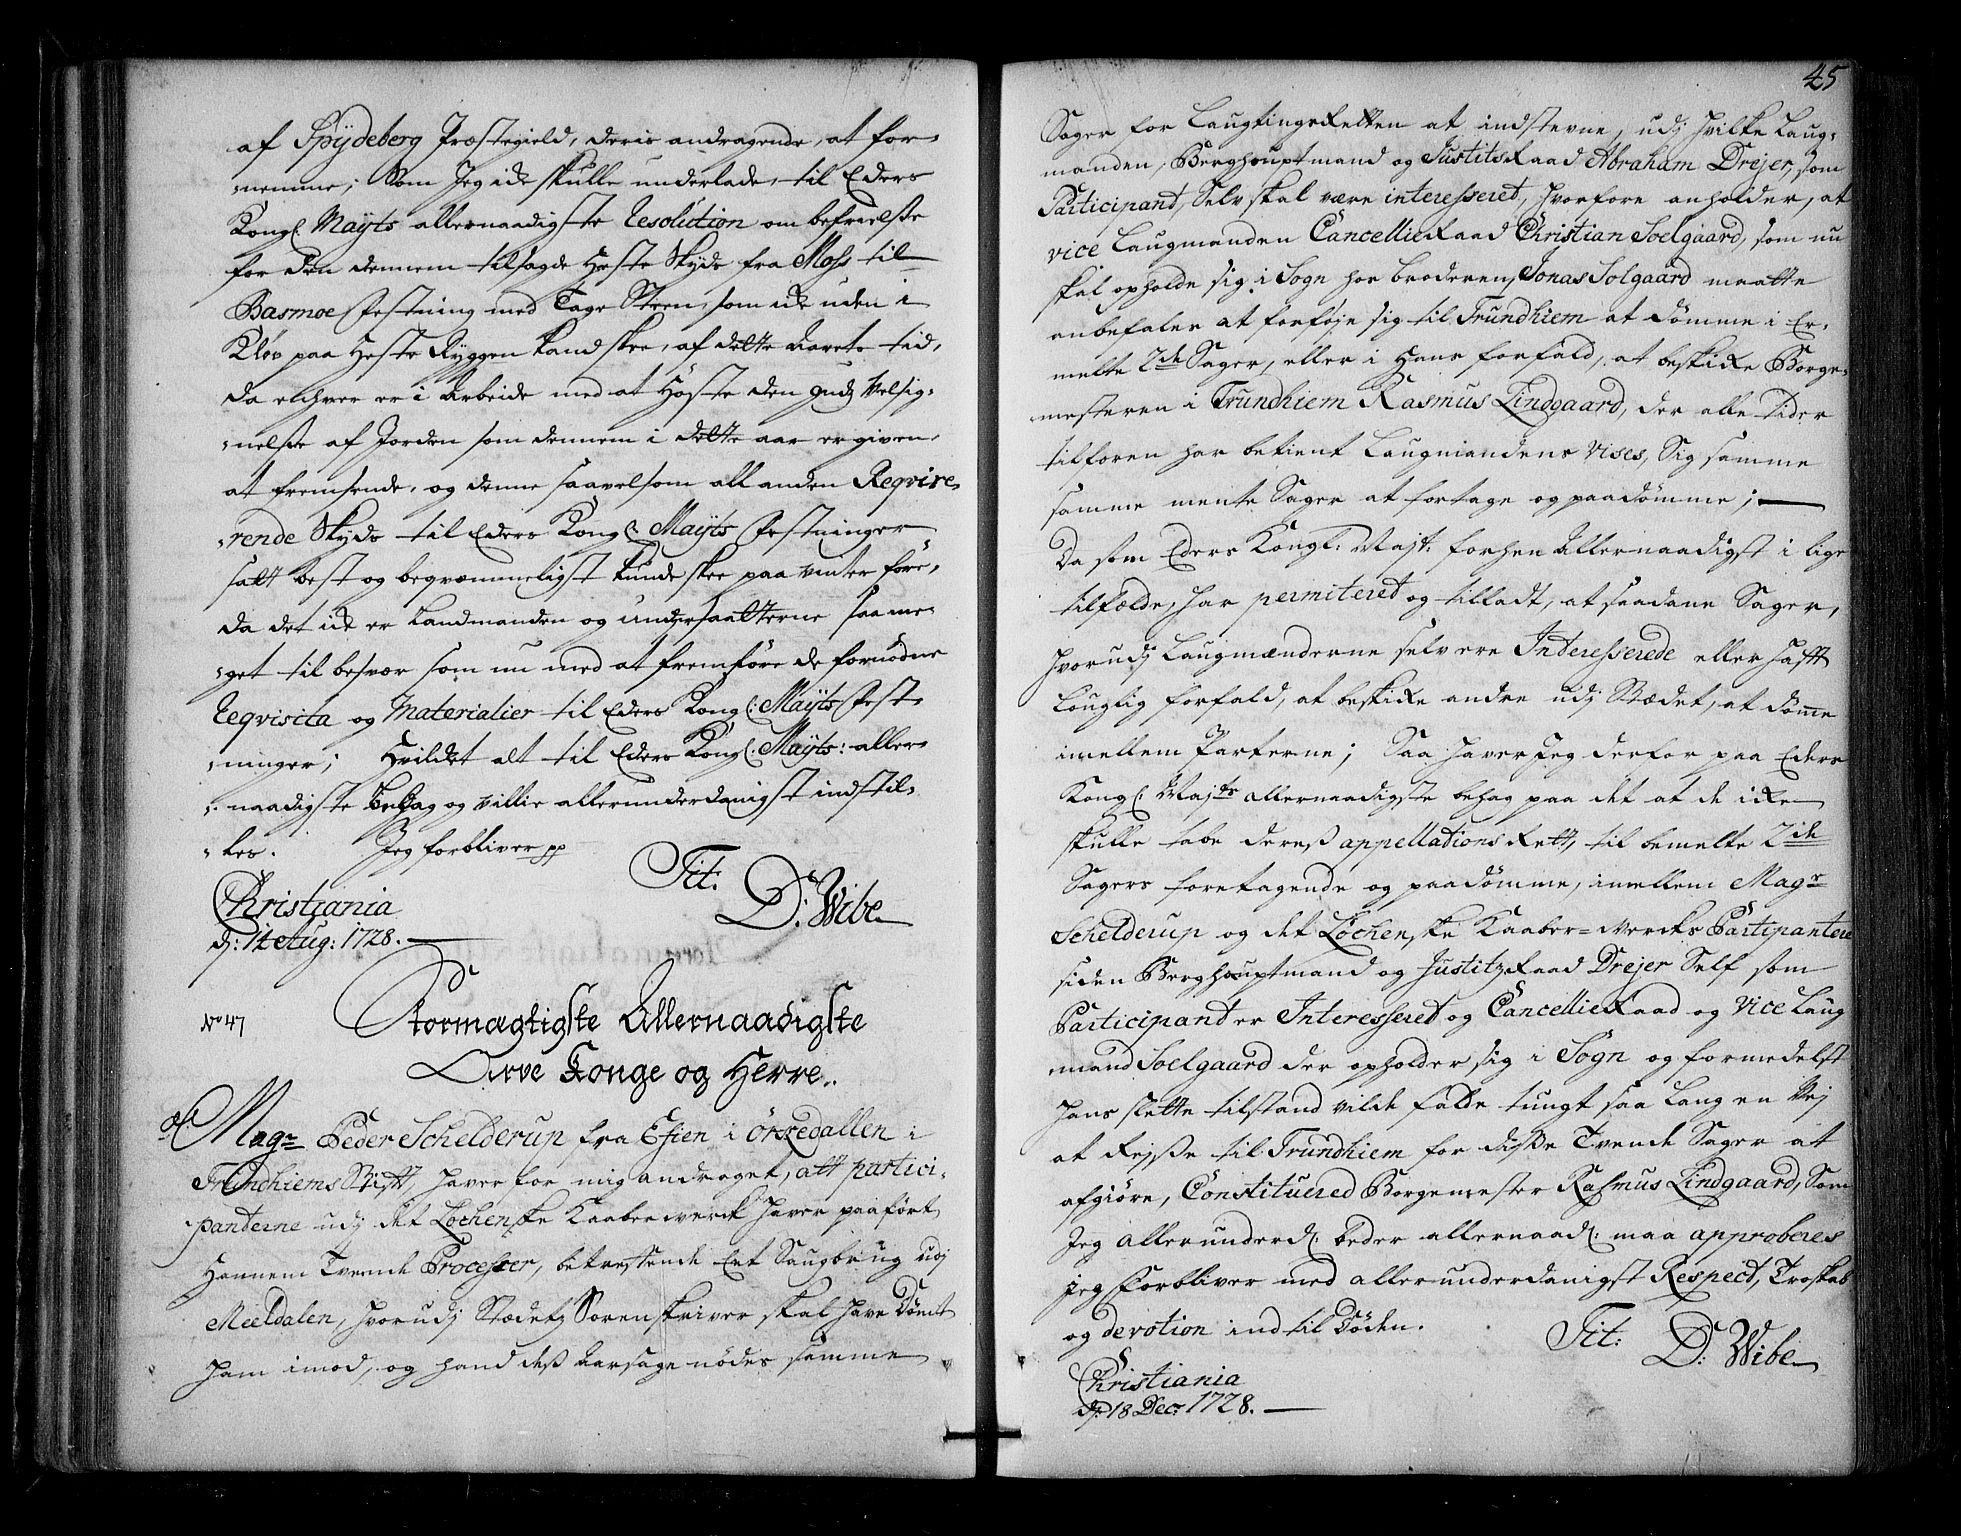 af Spydeberg Præstegield, deris andragende, at for-
-nemme; Som Jeg icke skulle underlade, til Eders
Kongl Mayts allernaadigste Resolution om befrielse
for den dennem tilsagde Heste Skyds fra Moss til
Basmoe Festning med Tage Steen, som icke uden i
Kløv paa Heste Ryggen kand skee, af dette Aarets tid,
da enhver er i Arbeide med at Høste den guds Velsig-
-nelse af Jorden som dennem i dette aar er given,
at fremsende, og denne saavelsom all anden Reqvire-
-rende Skyds til Eders Kongl Mayts Festninger
satt best og beqvemmeligst kunde skee paa vinter føre,
da det icke er Landmanden og undersaatterne saa me-
-get til besvær som nu med at fremføre de fornødne
Reqvisita og Materialier til Eders Kongl: Mayts Fest-
-ninger; Hvilcket alt til Eders Kongl. Mayts: aller-
-naadigste Behag og Villie allerunderdanigst indstil-
-les. Jeg forbliver pp
Tit: D: Wibe
Christiania
d: 14 Aug: 1728.
No 47
Stormægtigste Allernaadigste
Arve Konge og Herre..
Magr Peder Schelderup fra Efien i Ørkedallen i
Trundhiems Stift, haver for mig andraget, att partici-
panterne udj det Løchenske Kaaberwerck haver paaført
Hannem Tvende Processer, betreffende Eet Saugbrug udj
Meeldalen, hvorudj Stædets Sorenskriver skal have Dømt
ham imod, og hand dess Aarsage nødes samme
45
Sager for Laugtings Retten at indstevne, udj hvilke Laug-
manden, Berghauptmand og Justits Raad Abraham Drejer, som
Participant, Selv skal være interesseret, hvorfore anholder, at
vice Laugmanden Cancellie Raad Christian Soelgaard, som nu
skal opholde sig i Sogn hos broderen Jonas Solgaard maatte
anbefales at forføje sig til Trundhiem at dømme i Er-
melte 2de Sager, eller i Hans forfald, at beskicke Borge-
mesteren i Trundhiem Rasmus Lindgaard, der alle Tider
tilforen har betient Laugmandens vices, Sig samme
samme mente Sager at fortage og paadømme;
Da som Eders Kongl: Majt. forhen Allernaadigst i lige
tilfælde, har permiteret og tilladt, at saadane Sager,
hvorudj Laugmænderne selv ere Interesserede eller hafft
Louglig forfald, at beskicke andre udj Stædet, at dømme
imellem Parterne; Saa haver Jeg derfor paa Eders
Kongl: Majts allernaadigste behag paa det at de icke
skulle tabe deress appellations Rett, til bemelte 2de
Sagers foretagende og paadømme, imellem Magr
Schelderup og det Løchenske Kaaber-wercks Partipantere
siden Berghauptmand og Justitz Raad Drejer Self som
Participant er Interesseret og Cancellie Raad og Vice Laug
mand Soelgaard der opholder sig i Sogn og formedelst
hans slette tilstand vilde falde tungt saa lang en Vej
at Rejse til Trundhiem for disse Tvende Sager at
afgiøre, Constituered Borgemester Rasmus Lindgaard, Som
Jeg allerunderd. beder allernaad: maa approberes
jeg Forbliver med allerunderdanigst Respect, Troskab
og devotion ind til Døden.
Tit: D: Wibe
Christiania
d: 18 Decr 1728.